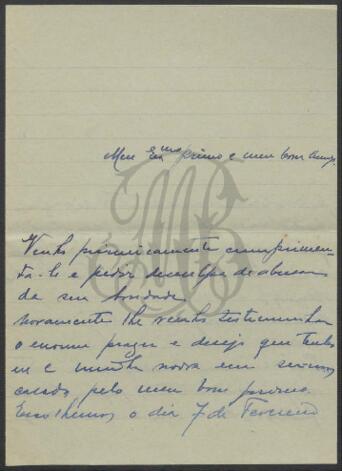 Meu Exmo primo e meu bom amigo
Venho primeiramente cumprimen-
ta-lo e pedir desculpa de abusar
da sua bondade
novamente lhe venho testemunhar
o enorme prazer e desejo que tenho
eu e minha noiva em sermos
casados pelo meu bom primo.
Escolhemos o dia 7 de Fevereiro